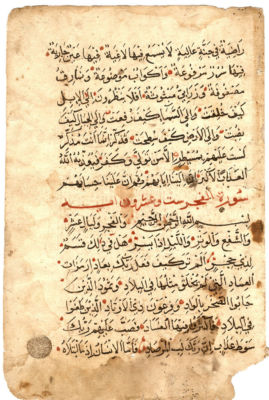 راضية في جنة عالية لا تسمع فيها لاغية فيها عين جارية
فيها سرر مرفوعة وأكواب موضوعة ونمارق
مصفوفة وزرابي مبثوثة أفلا ينظرون إلى الإبل
كيف خلقت وإلى السماء كيف رفعت وإلى الجبال كيف
نصبت وإلى الأرض كيف سطحت فذكر إنما أنت مذكر
لست عليهم بمصيطر إلا من تولى وكفر فيعذبه الله
العذاب الأكبر إن إلينا إيابهم ثم إن علينا حسابهم
سورة الفجر ست وعشرون آية
بسم الله الرحمن الرحيم والفجر وليال عشر
والشفع والوتر والليل إذا يسر هل في ذلك قسم
لذي حجر ألم تر كيف فعل ربك بعاد إرم ذات
العماد التي لم يخلق مثلها في البلاد وثمود الذين
جابوا الصخر بالواد وفرعون ذي الأوتاد الذين طغوا
في البلاد فأكثروا فيها الفساد فصب عليهم ربك
سوط عذاب إن ربك لبالمرصاد فأما الإنسان إذا ما ابتلاه